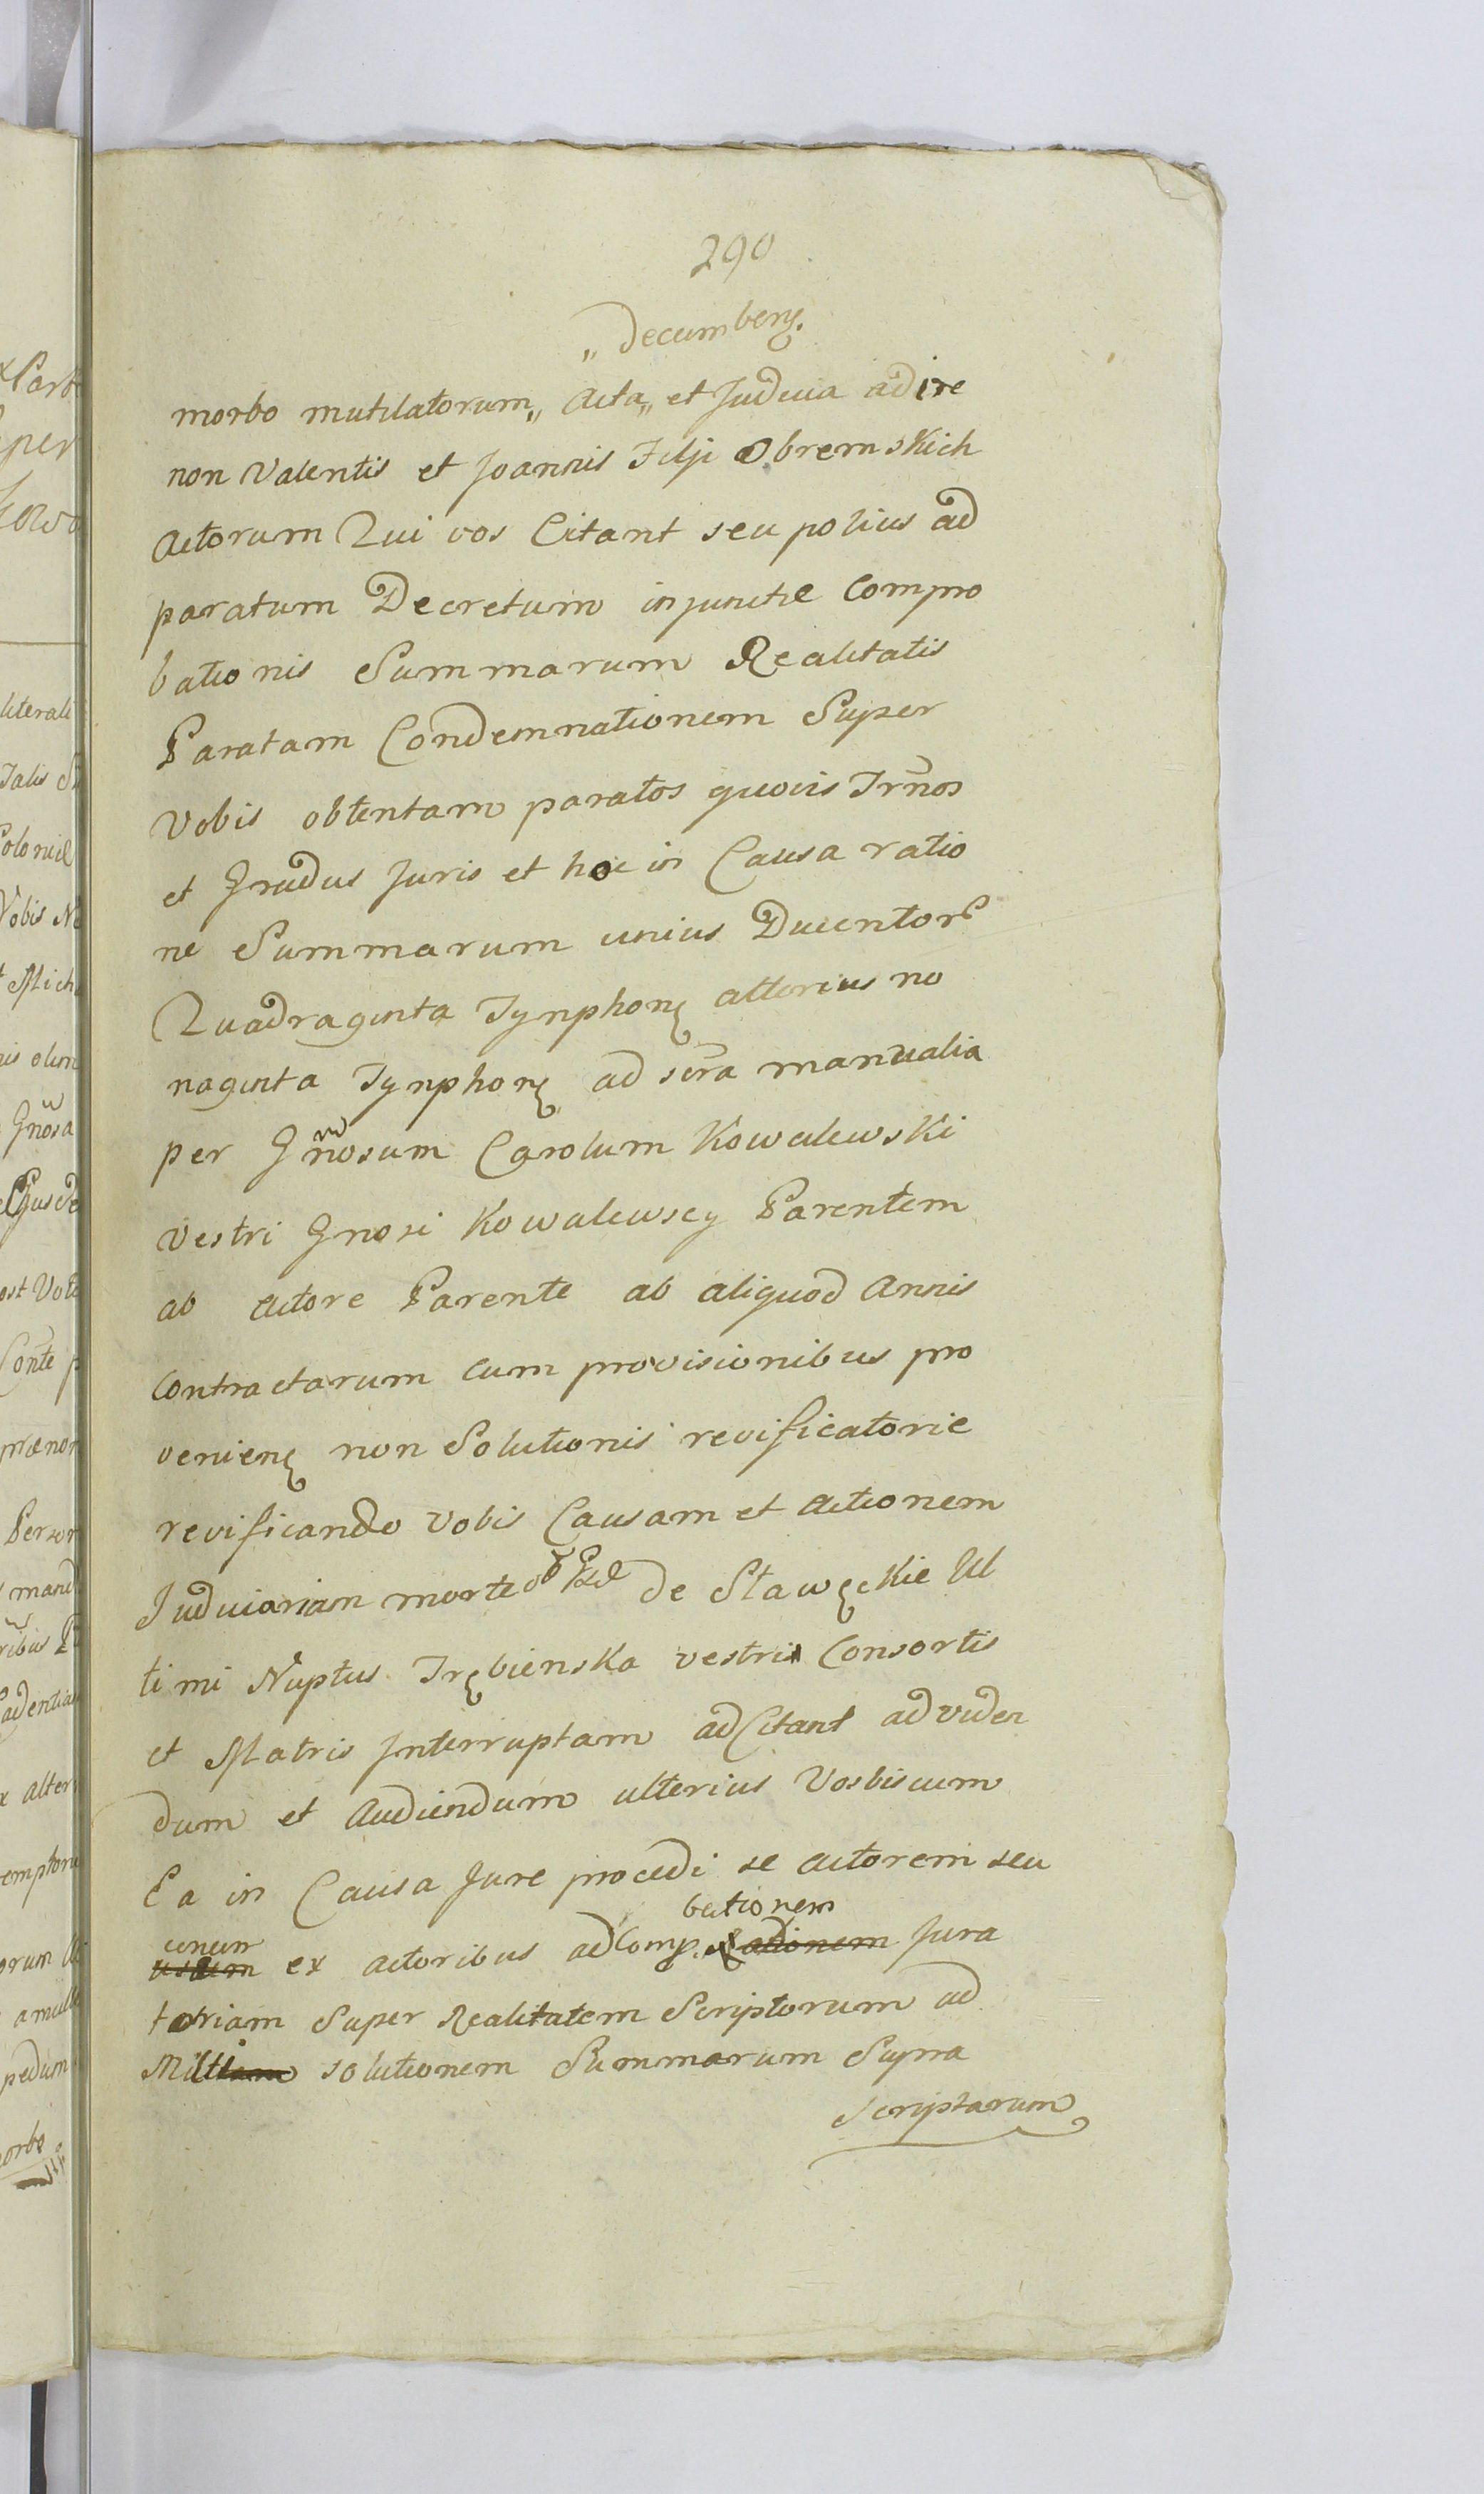 290
„ Decumbenę.
morbo mutilatorum „ Acta „ et Judicia adire
non Valentis et Joannis Filji Obremskich
Actorum Qui vos Citant seu potius ad
paratum Decretum injunctæ Compro
bationis Summarum Realitatis
Paratam Condemnationem Super
Vobis obtentam paratos quovis Trnos
et Gradus Juris et hoc in Causa ratio
ne Summarum unius Ducentor
Quadraginta Tynphonę alterius no
naginta Tynphonę ad scra manualia
per Gnosum Carolum Kowalewski
Vestri Gnosi Kowalewscy Parentem
ab Actore Parente ab aliquod Annis
Contractarum cum provisionibus pro
venienę non Solutionis revificatorie
revificando Vobis Causam et Actionem
Judiciariam morte de Stawęckie Ul
timi Nuptus Trębienska vestri Consortis
et Matris Interruptam adCitant ad viden
dum et Audiendum ulterius Vosbiscum
Ea in Causa Jure procedi se Actorem seu
unum ex Actoribus ad Comp. bationem Jura
toriam Super Realitatem Scriptorum ad
solutionem Summarum Supra
Scriptarum
x Part
per
literali
Talis
Vobis
Mich
olim
Gnosa
ost
Conte
Person
mand
ribus
alter
orum
pedum
morbo